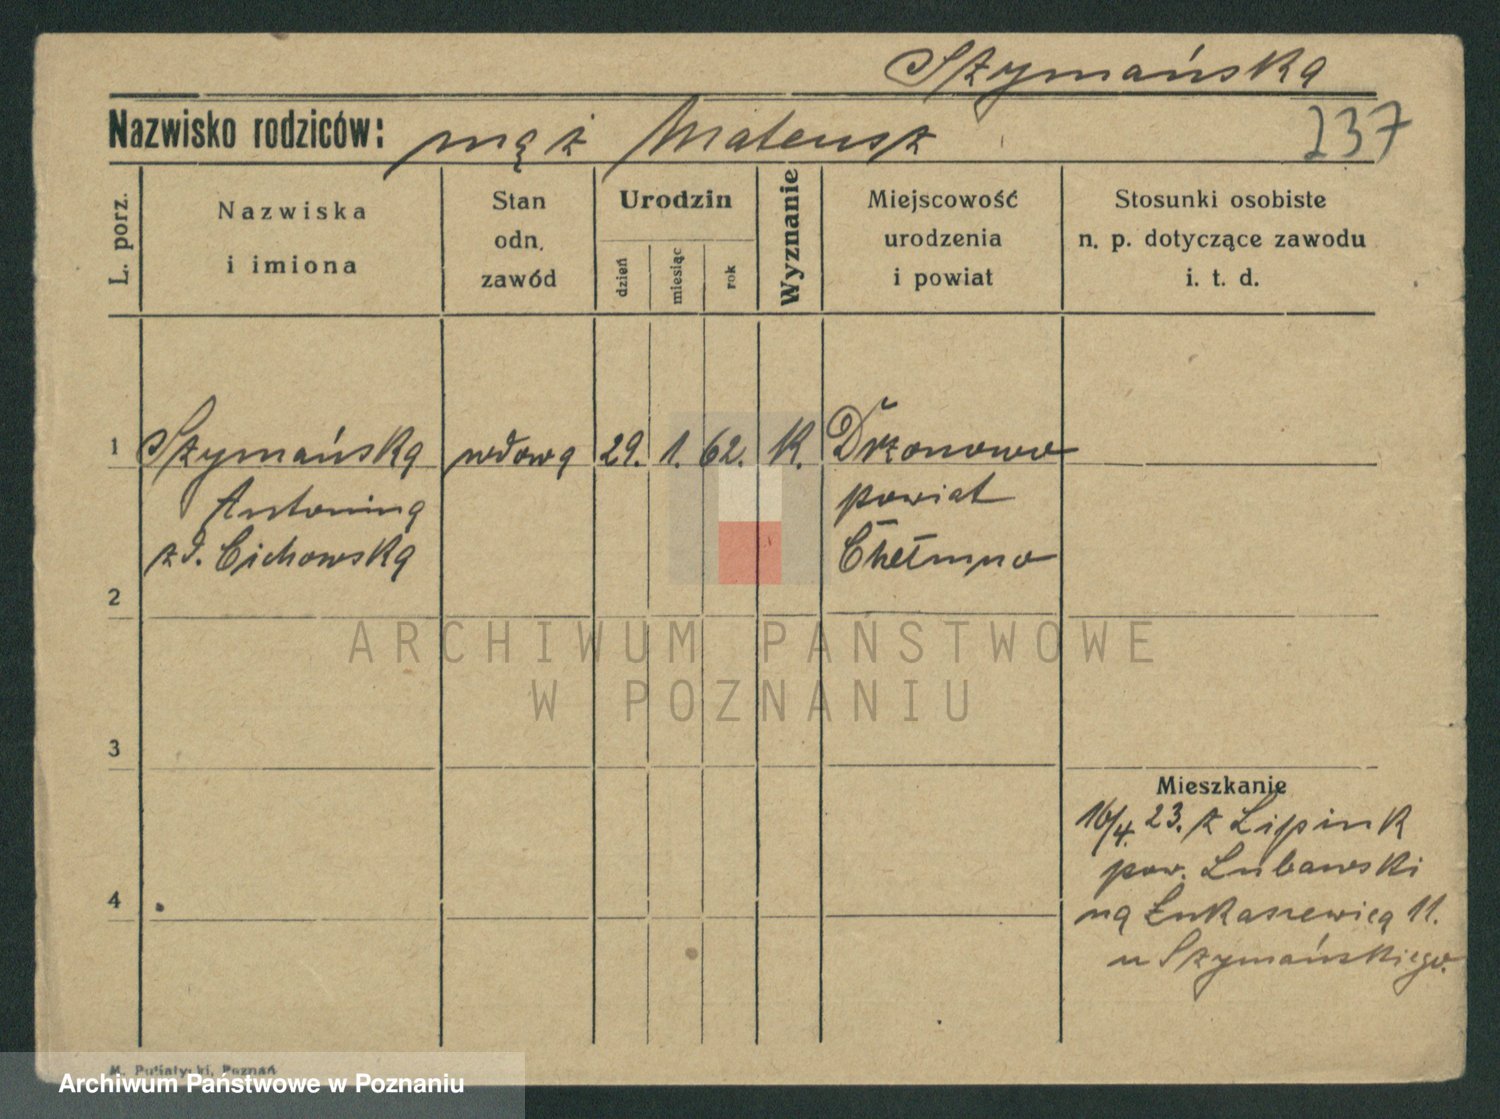 Szymańska
Nazwisko rodziców: mąż Mateusz 237
L. porz.
Nazwiska
i imiona
Stan
odn.
zawód
Urodzin
dzień
miesiąc
rok
Wyznanie
Miejscowość
urodzenia
i powiat
Stosunki osobiste
n. p. dotyczące zawodu
i. t. d.
1 Szymańska wdowa 29. 1. 62. K. Drzonowo
Antonina powiat
z d. Cichowska Chełmno
2
ARCHIWUM PAŃSTWOWE
W POZNANIU
3
Mieszkanie
16/4. 23. z Lipink
pow. Lubawski
4
na Łukaszewicza 11.
u Szymańskiego.
M. Putiatycki, Poznań
Archiwum Państwowe w Poznaniu